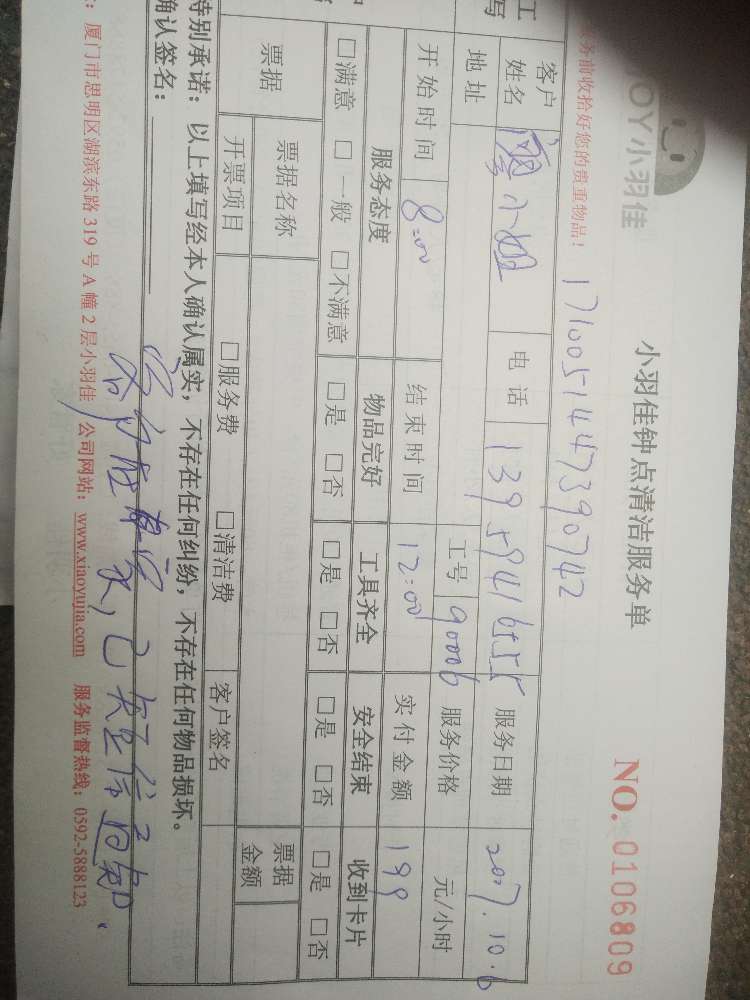 OY小羽佳
小羽佳钟点清洁服务单
NO. 0106809
务前收拾好您的贵重物品！
1710051447390742
客户姓名 小姐 电话 13959416555 服务日期 2007.10.6
地址 工号 90006 服务价格 元/小时
开始时间 8:00 结束时间 12:00 实付金额 199
服务态度 物品完好 工具齐全 安全结束 收到卡片
□满意 □一般 □不满意 □是 □否 □是 □否 □是 □否 □是 □否
票据 票据名称 票据金额
开票项目 □服务费 □清洁费 客户签名
特别承诺：以上填写经本人确认属实，不存在任何纠纷，不存在任何物品损坏。
确认签名：
厦门市思明区湖滨东路 319 号 A 幢 2 层小羽佳 公司网站：www.xiaoyujia.com 服务监督热线：0592-5888123